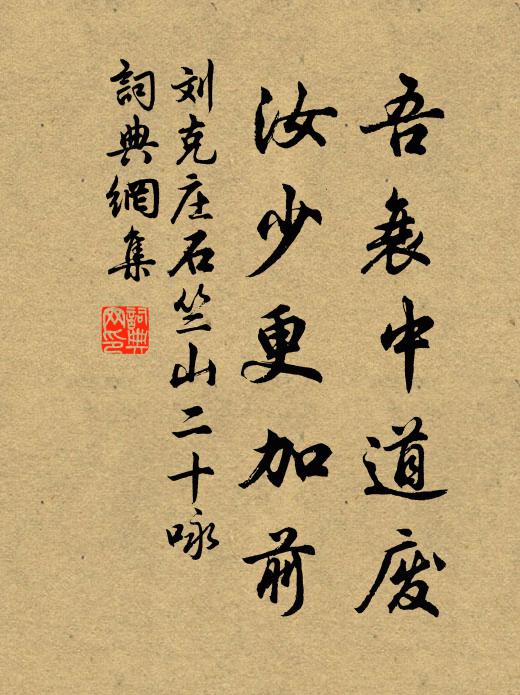 吾衰中道废
汝少更加前
刘克庄石竺山二十咏
詞典網集
詞典网印